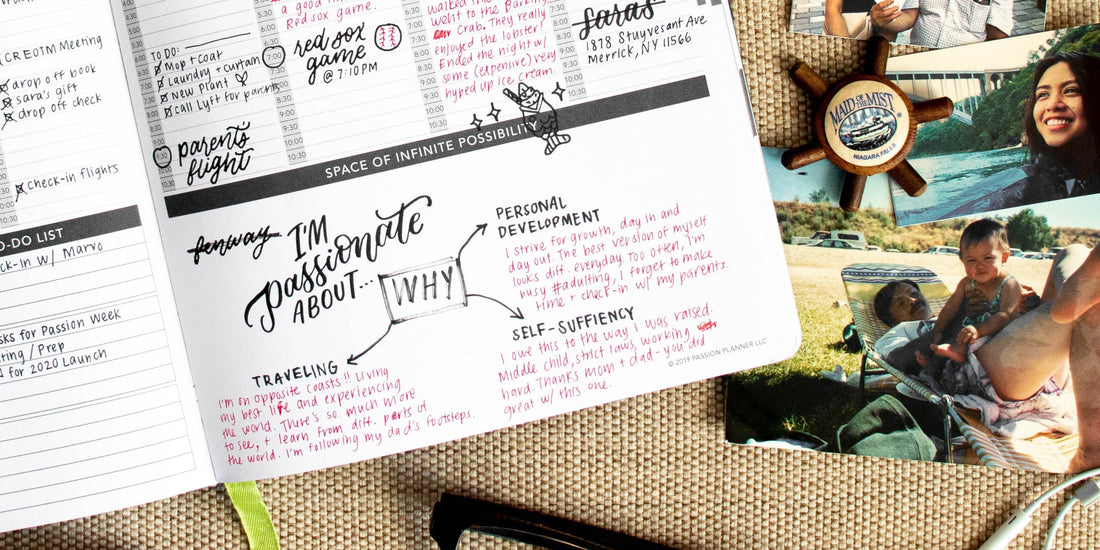 CREOTM Meeting
drop off book
sara's gift
drop off check
Check-in flights
10:30
O-DO LIST
ck-in w/ Marvo
sks for Passion Week
ting / Prep
for 2020 Launch
TO DO:
Mop + coat
Laundry + curtain
New Plant
Call Lyft for parents
parents'
flight
7:00
a good
Red sox game.
red sox
game
@ 7:10PM
walked
went to the Parking
Crab. They really
enjoyed the lobster!
Ended the night w/
some (expensive) very
hyped up ice cream.
saras
1878 Stuyvesant Ave
Merrick, NY 11566
SPACE OF INFINITE POSSIBILITY
fenway
I'M
passionate
ABOUT...
WHY
PERSONAL
DEVELOPMENT
I strive for growth, day in and
day out. The best version of myself
looks diff. everyday. Too often, I'm
busy #adulting, I forget to make
time + check-in w/ my parents.
SELF-SUFFIENCY
I owe this to the way I was raised.
Middle child, strict laws, working
hard. Thanks mom + dad - you did
great w/ this one.
TRAVELING
I'm on opposite coasts!! Living
my best life and experiencing
the world. There's so much more
to see, + learn from diff. parts of
the world. I'm following my dad's footsteps.
© 2019 PASSION PLANNER LLC
MAID OF THE MIST
®
NIAGARA FALLS